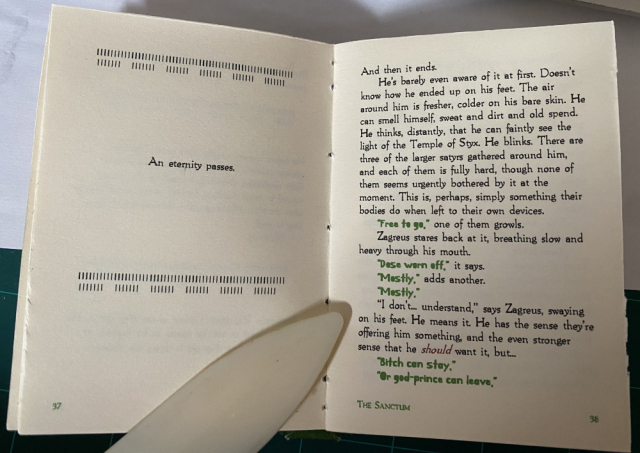 An eternity passes.
37
And then it ends.
He's barely even aware of it at first. Doesn't
know how he ended up on his feet. The air
around him is fresher, colder on his bare skin. He
can smell himself, sweat and dirt and old spend.
He thinks, distantly, that he can faintly see the
light of the Temple of Styx. He blinks. There are
three of the larger satyrs gathered around him,
and each of them is fully hard, though none of
them seems urgently bothered by it at the
moment. This is, perhaps, simply something their
bodies do when left to their own devices.
"Free to go," one of them growls.
Zagreus stares back at it, breathing slow and
heavy through his mouth.
"Dose worn off," it says.
"Mostly," adds another.
"Mostly."
"I don't... understand," says Zagreus, swaying
on his feet. He means it. He has the sense they're
offering him something, and the even stronger
sense that he should want it, but...
"Bitch can stay."
"Or god-prince can leave."
THE SANCTUM
38